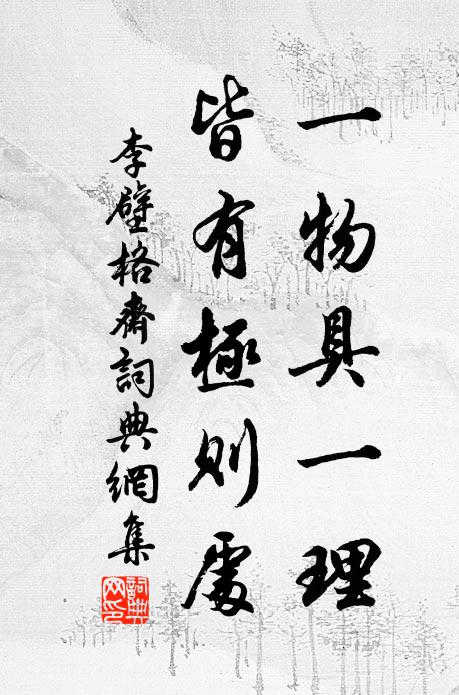 一物具一理
皆有極則處
李壁格齋詞典網集
詞典
网印